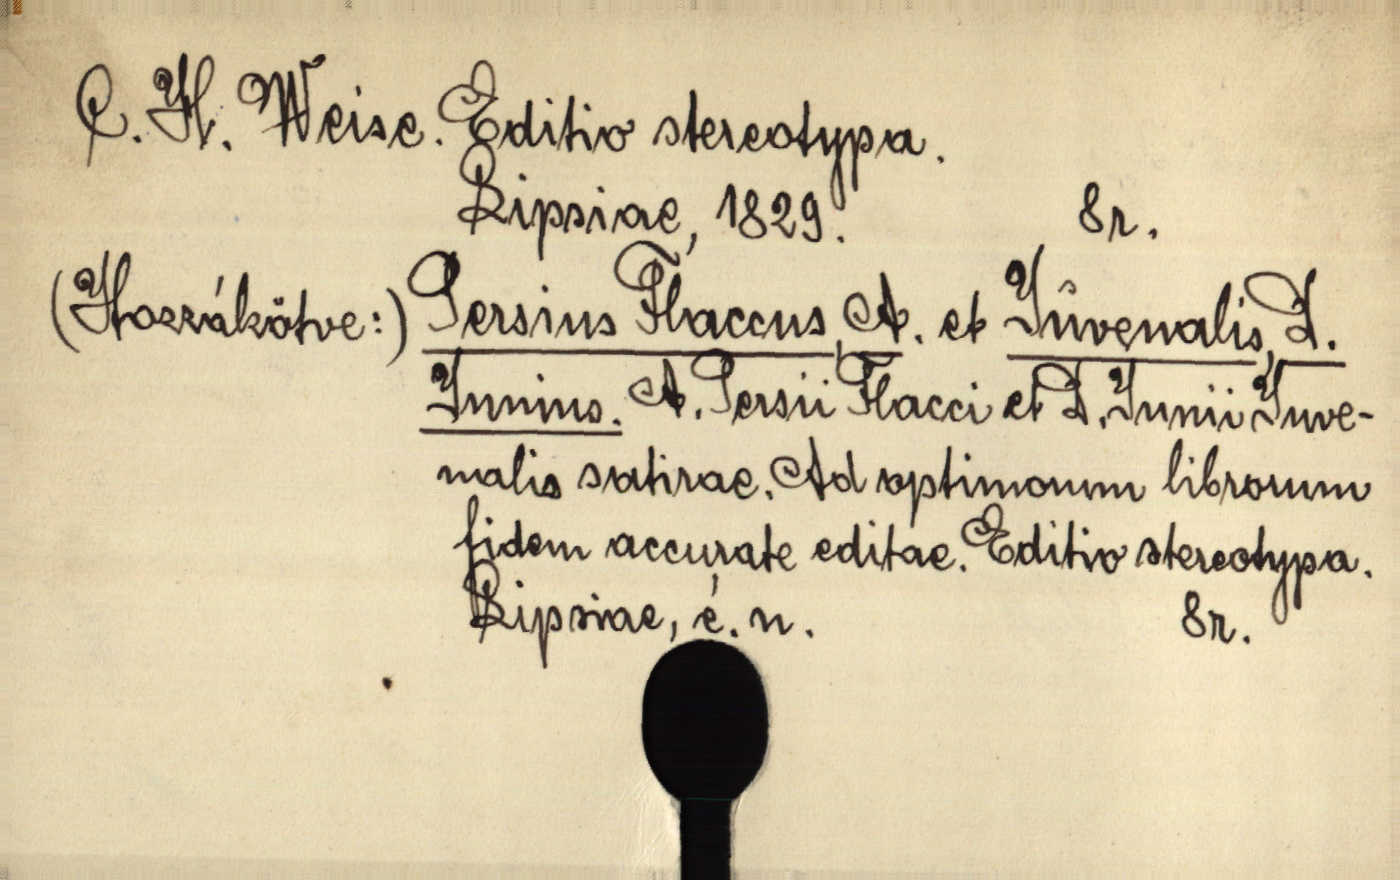 C. H. Weise. Editio stereotypa.
Lipsiae, 1829. 8r.
(Hozzákötve:) Persius Flaccus, A. et Juvenalis, D.
Junius. A. Persii Flacci et D. Junii Juve-
nalis satirae. Ad optimorum librorum
fidem accurate editae. Editio stereotypa.
Lipsiae, é. n. 8r.